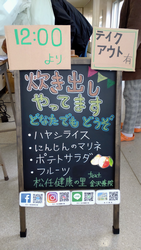 12:00
より
テイク
アウト
有
炊き出し
やってます
どなたでもどうぞ
・ハヤシライス
・にんじんのマリネ
・ポテトサラダ
・フルーツ
松任健康の里